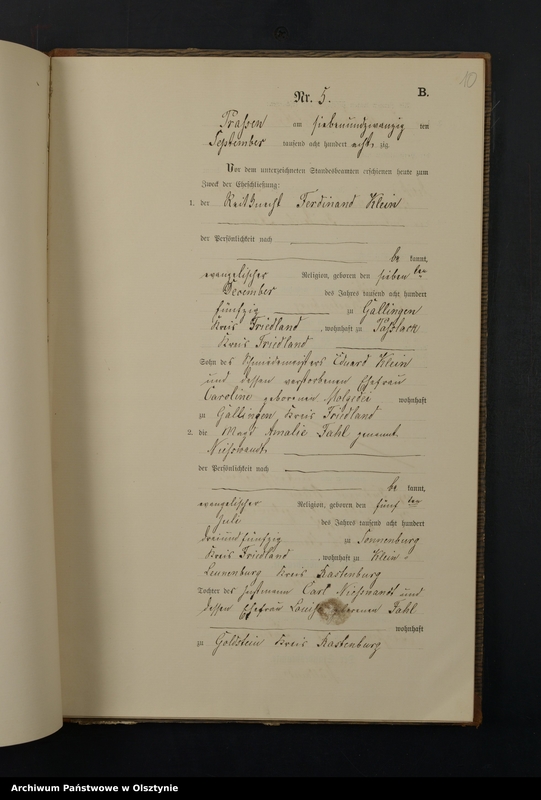 10
Nr. 5.
B.
Praßen am siebenundzwanzig ten
September tausend acht hundert acht zig
Vor dem unterzeichneten Standesbeamten erschienen heute zum
Zweck der Eheschließung:
1. der Reitknecht Ferdinand Klein
der Persönlichkeit nach
be kannt,
evangelischer Religion, geboren den sieben ten
December des Jahres tausend acht hundert
fünfzig zu Gallingen
Kreis Friedland, wohnhaft zu
Kreis Friedland
Sohn des Schmiedemeisters Eduard Klein
und dessen verstorbenen Ehefrau
Caroline geborenen wohnhaft
zu Gallingen Kreis Friedland
2. die Magd Amalie Fahl genannt
der Persönlichkeit nach
be kannt,
evangelischer Religion, geboren den fünf ten
Juli des Jahres tausend acht hundert
dreiundfünfzig zu Sonnenburg
Kreis Friedland, wohnhaft zu Klein
Leunenburg Kreis Rastenburg
Tochter des Carl und
dessen Ehefrau Louise geborenen Fahl
wohnhaft
zu Kreis Rastenburg
Archiwum Państwowe w Olsztynie